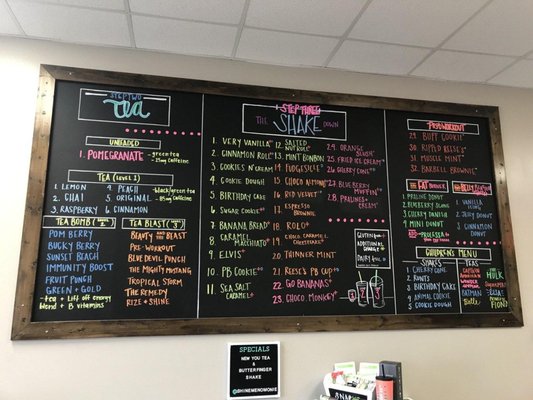 STEP TWO
tea
UNLEADED
1 POMEGRANATE - green tea
25mg caffeine
TEA (LEVEL 1)
1 LEMON 4 PEACH
2 CHAI 5 ORIGINAL
3 RASPBERRY 6 CINNAMON
black/green tea
85mg caffeine
TEA BOMB
POM BERRY
BUGKY BERRY
SUNSET BEACH
IMMUNITY BOOST
FRUIT PUNCH
GREEN + GOLD
- tea + lift off energy
blend + B vitamins
TEA BLAST
BEAUTY AND THE BEAST
PRE-WORKOUT
BLUE DEVIL PUNCH
THE MIGHTY MUSTANG
TROPICAL STORM
THE REMEDY
RIZE + SHINE
STEP THREE
THE SHAKE DOWN
1 VERY VANILLA
2 CINNAMON ROLL
3 COOKIES N' CREAM
4 COOKIE DOUGH
5 BIRTHDAY CAKE
6 SUGAR COOKIE
7 BANANA BREAD
8 CARAMEL
MACCHIATO
9 ELVIS
10 PB COOKIE
11 SEA SALT
CARAMEL
12 SALTED
NUT ROLL
13 MINT BONBON
14 FUDGESICLE
15 CHOCO ALMOND
16 RED VELVET
17 ESPRESSO
BROWNIE
18 ROLO
19 CHOCO CARAMEL
CHEESECAKE
20 THINNER MINT
21 REESE'S PB CUP
22 GO BANANAS
23 CHOCO MONKEY
24 ORANGE
SLUSH
25 FRIED ICE CREAM
26 CHERRY CORDY
27 BLUEBERRY
MUFFIN
28 PRALINES +
CREAM
GLUTEN FREE
ADDITIONAL
CHARGE
DAIRY FREE
POST WORKOUT
29 BUFF COOKIE
30 RIPPED REESE'S
31 MUSCLE MINT
32 BARBELL BROWNIE
FAT BURNER
PRALINE DONUT
BLUEBERRY SCONE
CHERRY DANISH
MINT DONUT
BELLY BUSTER
1 VANILLA
2 JELLY DONUT
3 CINNAMON
DONUT
CHILDREN'S MENU
SHAKES
1 CHERRY CONE
2 RUNTS
3 BIRTHDAY CAKE
4 ANIMAL COOKIE
5 COOKIE DOUGH
TEAS
CAPTAIN
AMERICA
WONDER
WOMAN
BATMAN
HULK
SPECIALS
NEW YOU TEA &
BUTTERFINGER
SHAKE
@SHINEMENOMONIE
SNACKS